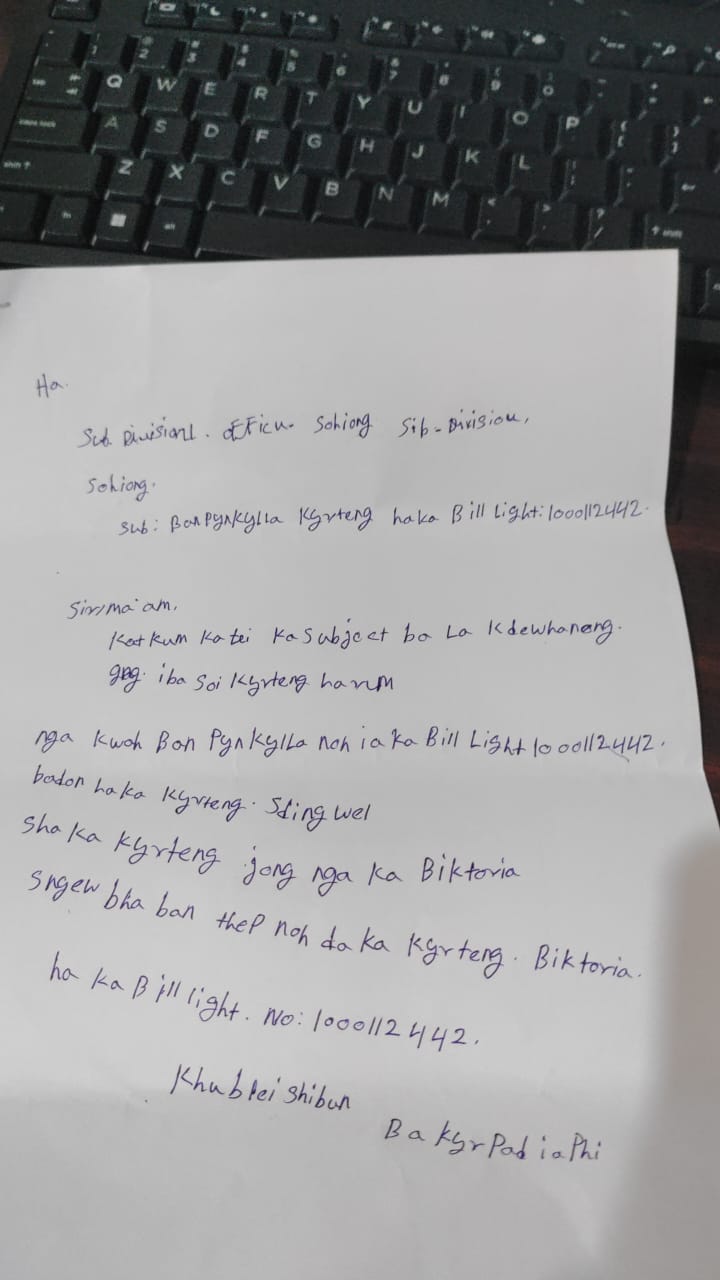 Ha.
Sub Divisionl. officu. Sohiong Sib-Division,
Sohiong.
Sub: Ban Pynkylla Kyrteng haka Bill Light: 1000112442.
Sir/ma'am,
Kat kum ka tei ka subject ba La Kdewhaneng.
iba soi Kyrteng harum
nga kwoh Ban Pynkylla noh ia ka Bill Light 1000112442.
badon haka Kyrteng. Sding wel
Sha ka Kyrteng jong nga ka Biktoria
Sngew bha ban thep noh da ka Kyrteng. Biktoria.
ha ka Bill light. No: 1000112442.
Khublei Shibun
Ba kyrpad ia Phi